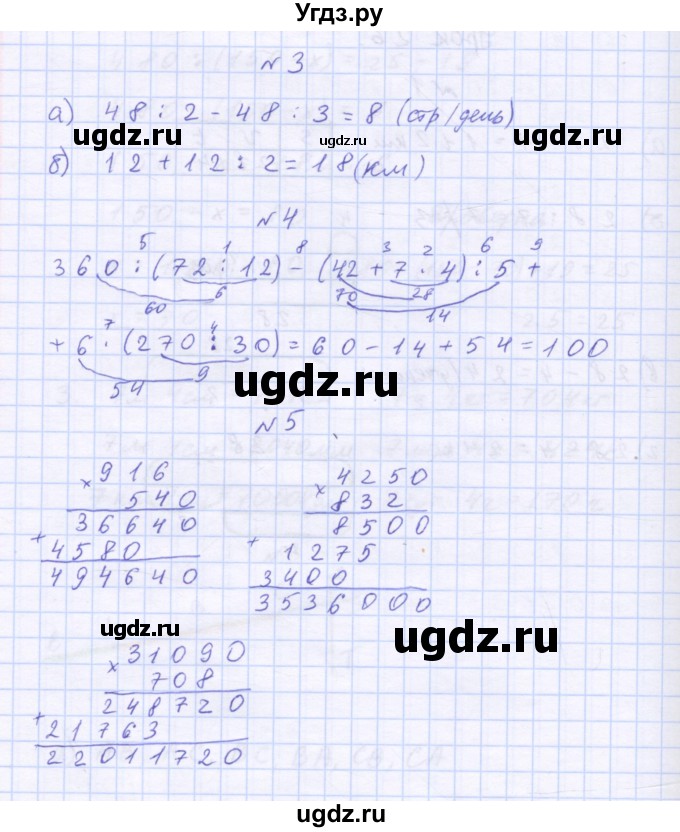 Угдз.ру
N 3
а) 48 : 2 - 48 : 3 = 8 (стр/день)
ugdz.ru ugdz.ru ugdz.ru
б) 12 + 12 : 2 = 18 (км)
N 4
5 1 8 3 2 6 9
360 : (72 : 12) - (42 + 7 · 4) : 5 +
6 28
60 70
14
7 4
+ 6 · (270 : 30) = 60 - 14 + 54 = 100
9
54
ugdz.ru
N 5
× 916
540
36640
+ 4580
494640
× 4250
832
8500
+ 1275
3400
3536000
ugdz.ru ugdz.ru
× 31090
708
248720
+ 21763
22011720
ugdz.ru